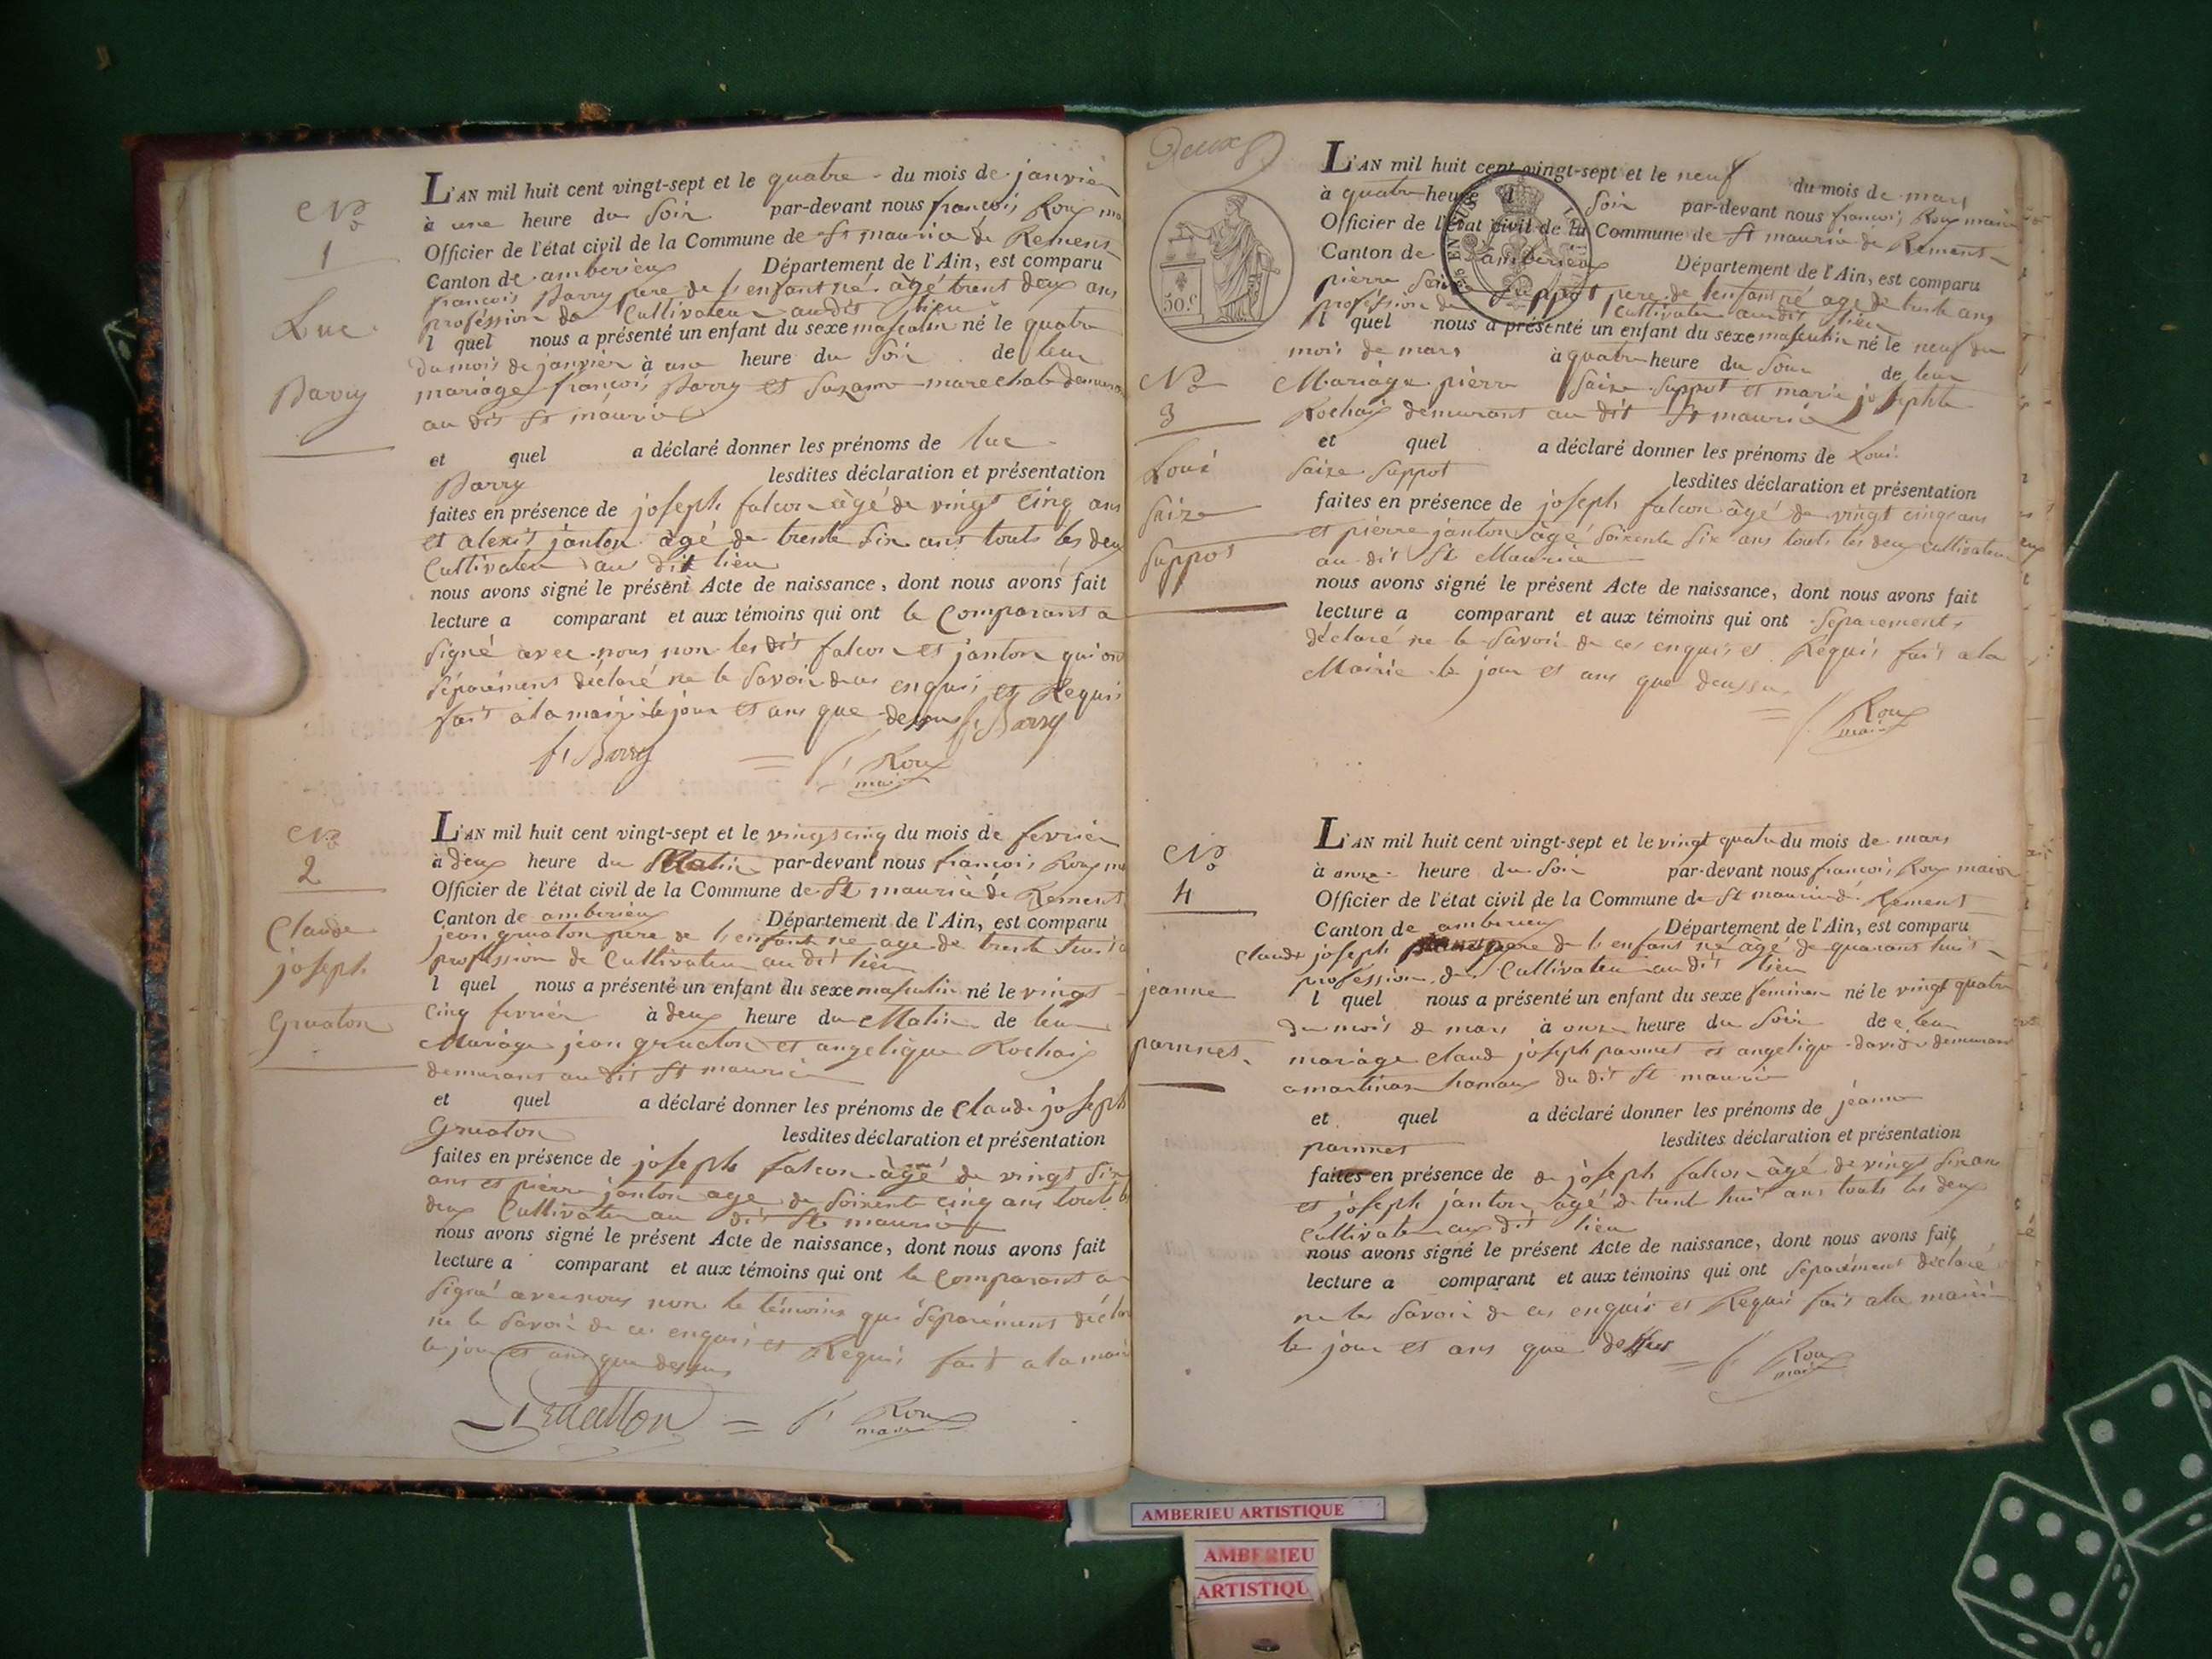 No
1
Luc
Barry
L'AN mil huit cent vingt-sept et le quatre du mois de janvier
à une heure du soir par-devant nous françois Roux
Officier de l'état civil de la Commune de St maurice de Remens
Canton de amberieux Département de l'Ain, est comparu
françois Barry pere de l'enfant né âgé trent deux ans
profession de Cultivateur audit lieu
l quel nous a présenté un enfant du sexe masculin né le quatre
du mois de janvier à une heure du soir de leur
mariage françois Barry et Suzanne marechale
au dit St maurice
et quel a déclaré donner les prénoms de luc
Barry lesdites déclaration et présentation
faites en présence de joseph falcon âgé de vingt cinq ans
et alexis janton âgé de trente six ans touts les deux
Cultivateur au dit lieu
nous avons signé le présent Acte de naissance, dont nous avons fait
lecture a comparant et aux témoins qui ont le Comparant a
signé avec nous non les dit falcon et janton qui ont
séparément déclaré ne le savoir de ces enquis et Requis
fait à la mairie le jour et ans que dessus f Barry
f Barry = f Roux
maire
No
2
Claude
joseph
Gruaton
L'AN mil huit cent vingt-sept et le vingt cinq du mois de fevrier
à deux heure du Matin par-devant nous françois Roux
Officier de l'état civil de la Commune de St maurice de Remens
Canton de amberieux Département de l'Ain, est comparu
jean gruaton pere de l'enfant né age de trente
profession de Cultivateur au dit lieu
l quel nous a présenté un enfant du sexe masculin né le vingt
cinq fevrier à deux heure du Matin de leur
Mariage jean gruaton et angelique Rochaix
demurant au dit St maurice
et quel a déclaré donner les prénoms de Claude joseph
Gruaton lesdites déclaration et présentation
faites en présence de joseph falcon âgé de vingt six
ans et pierre janton age de soixente cinq ans touts
deux Cultivateur au dit St maurice
nous avons signé le présent Acte de naissance, dont nous avons fait
lecture a comparant et aux témoins qui ont le Comparant a
signé avec nous non le témoins qui séparément
ne le savoir de ces enquis et Requis fait a la
le jour et ans que dessus
Gruatton = f Roux
maire
Deux
50 c
L'AN mil huit cent vingt-sept et le neuf du mois de mars
à quatre heure d soir par-devant nous françois Roux maire
Officier de l'état civil de la Commune de St maurice de Remens
Canton de amberieux Département de l'Ain, est comparu
pierre Saize Suppot pere de l'enfant né age de trente ans
profession de Cultivateur au dit lieu
l quel nous a présenté un enfant du sexe masculin né le neuf du
mois de mars à quatre heure du soir de leur
No
3
Loui
Saize
Suppot
Mariage pierre Saize Suppot et marie josephte
Rochaix demurant au dit St maurice
et quel a déclaré donner les prénoms de Loui
Saize Suppot lesdites déclaration et présentation
faites en présence de joseph falcon âgé de vingt cinq ans
et pierre janton âgé soixente six ans touts les deux cultivateur
au dit St Maurice
nous avons signé le présent Acte de naissance, dont nous avons fait
lecture a comparant et aux témoins qui ont séparement
déclaré ne le savoir de ces enquis et Requis fait a la
Mairie le jour et ans que dessus
= f Roux
maire
No
4
jeanne
pannet
L'AN mil huit cent vingt-sept et le vingt quatre du mois de mars
à onze heure du soir par-devant nous françois Roux maire
Officier de l'état civil de la Commune de St maurice de Remens
Canton de amberieux Département de l'Ain, est comparu
Claude joseph pere de l'enfant né âgé de quarant huit
profession de Cultivateur au dit lieu
l quel nous a présenté un enfant du sexe feminin né le vingt quatre
du mois de mars à onze heure du soir de leur
mariage Claude joseph pannet et angelique david demurant
a martinaz hamaux du dit St maurice
et quel a déclaré donner les prénoms de jeanne
pannet lesdites déclaration et présentation
faites en présence de de joseph falcon âgé de vingt six an
et joseph janton âgé de trent huit ans touts les deux
Cultivateur au dit lieu
nous avons signé le présent Acte de naissance, dont nous avons fait
lecture a comparant et aux témoins qui ont séparément déclaré
ne le savoir de ces enquis et Requis fait a la mairie
le jour et ans que dessus
= f Roux
maire
AMBERIEU ARTISTIQUE
AMBERIEU
ARTISTIQU